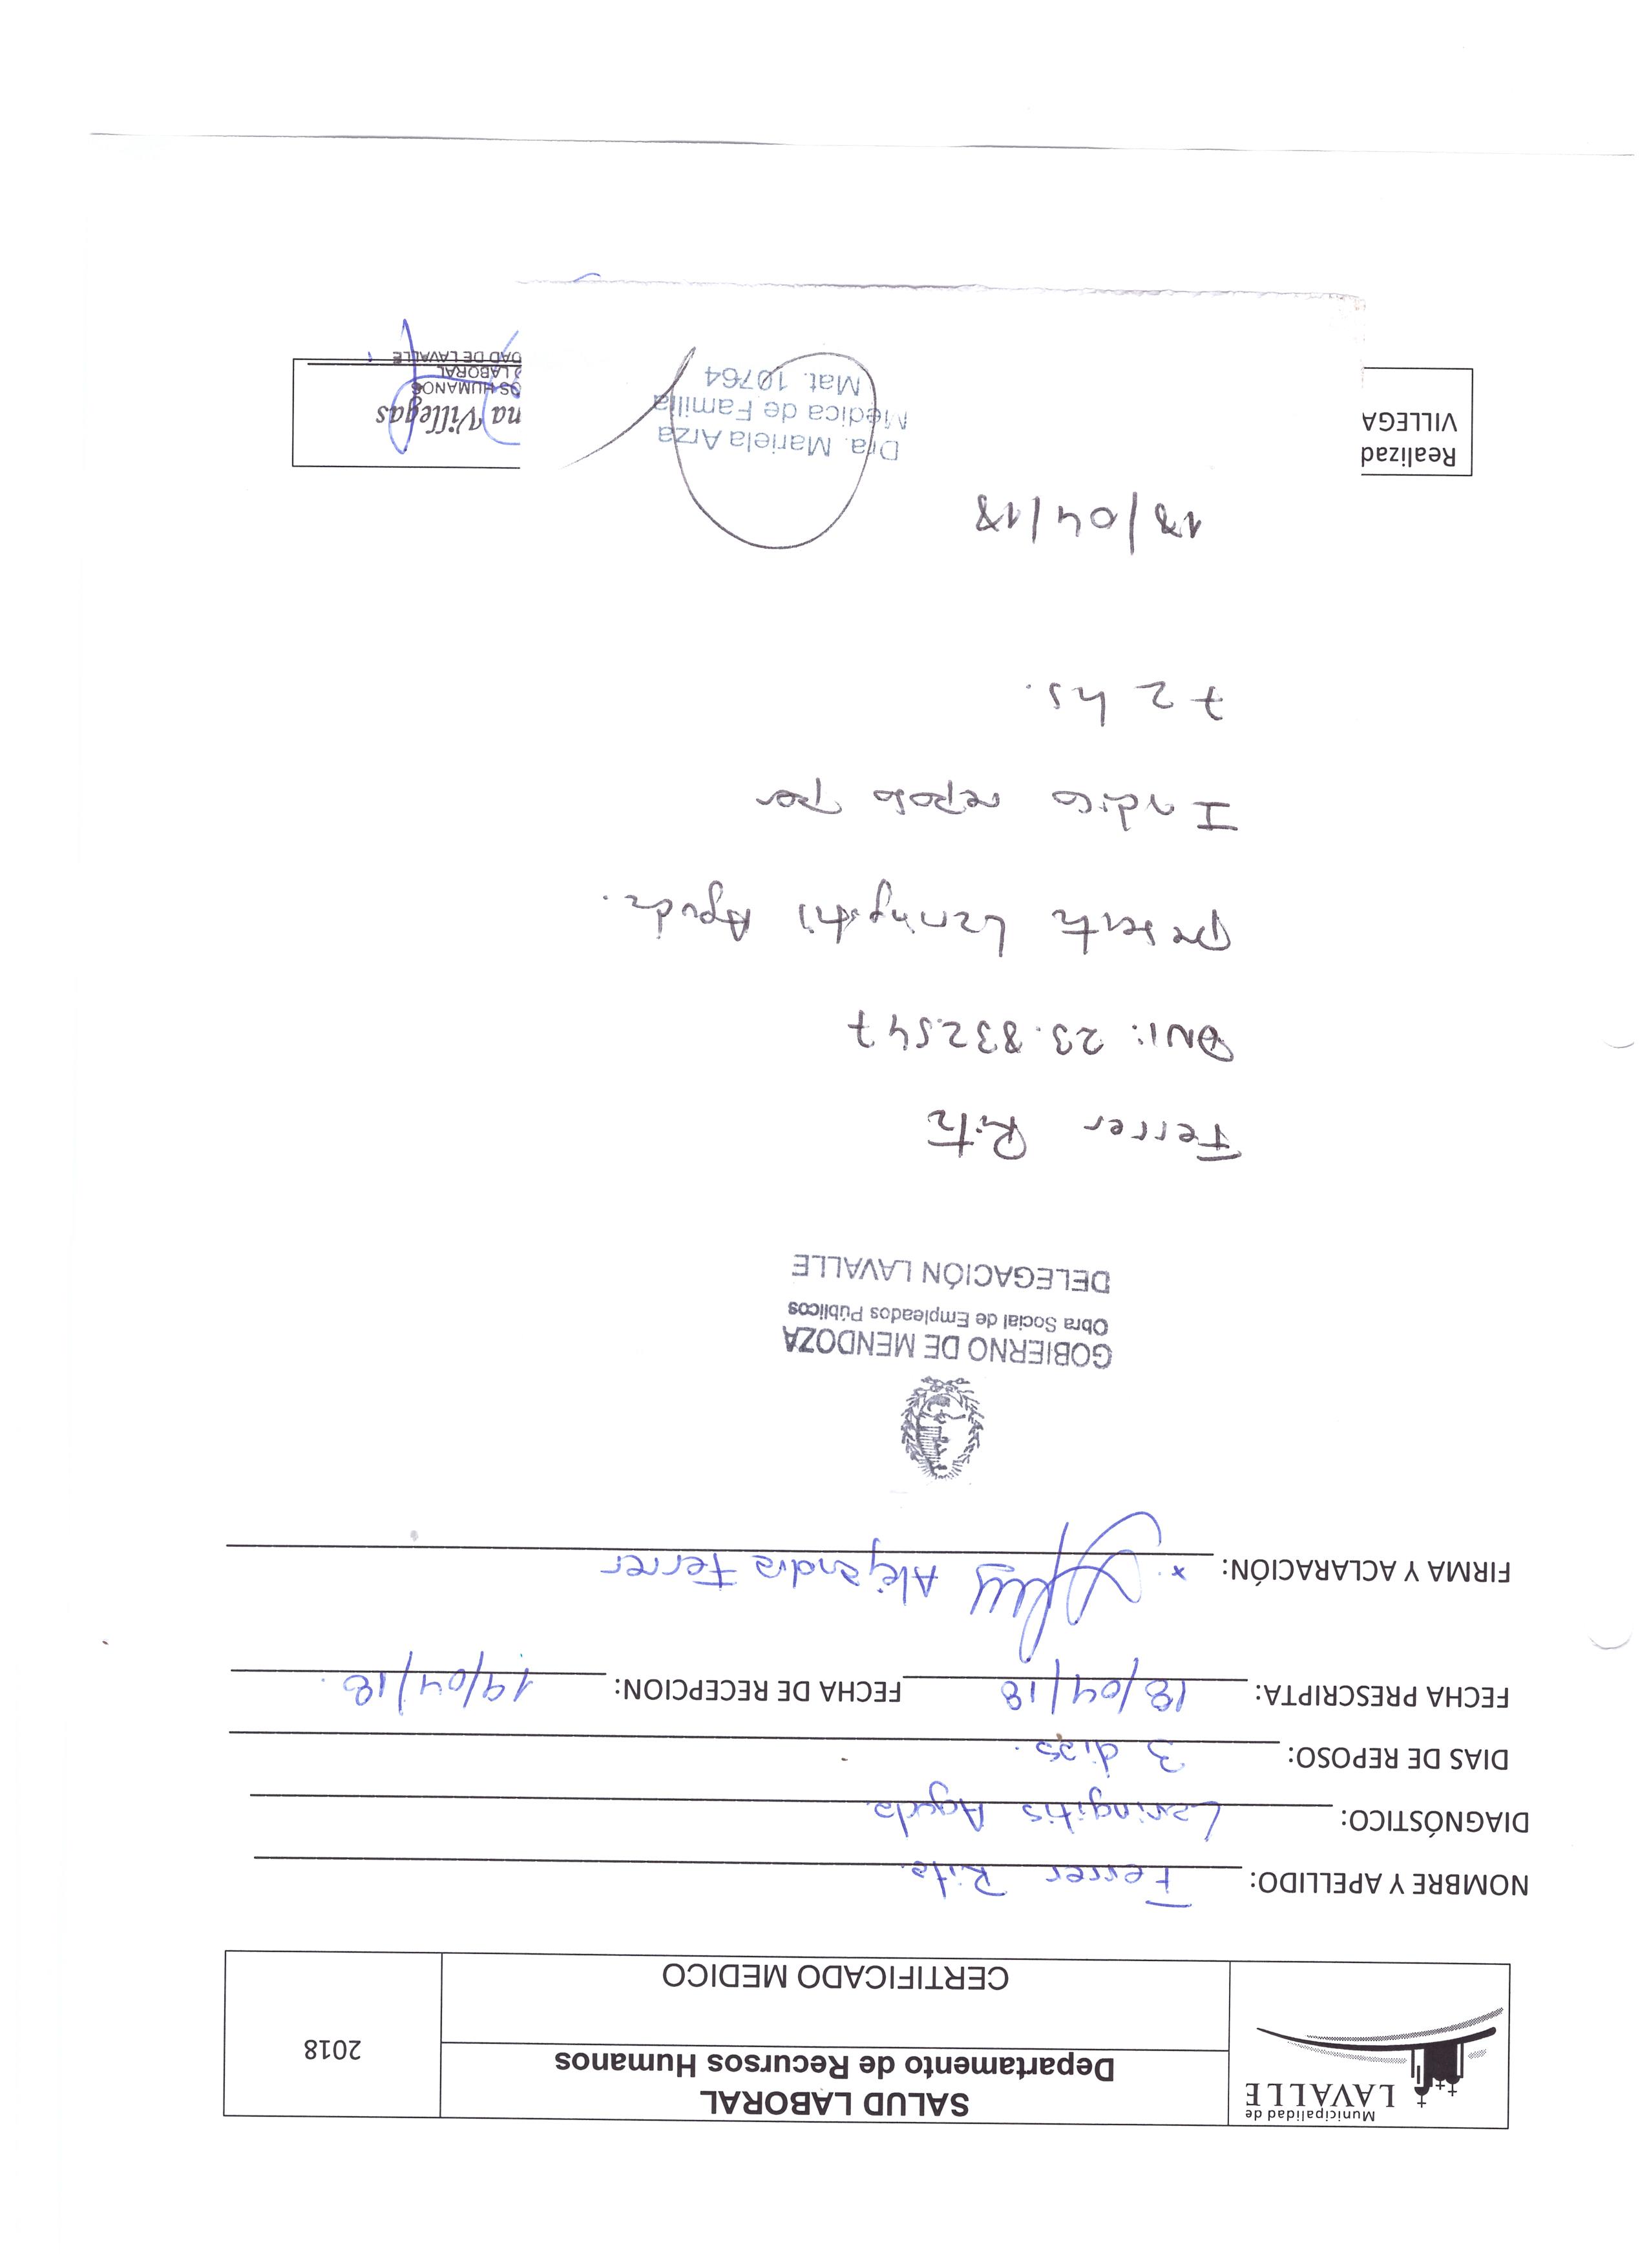 Municipalidad de
LAVALLE
SALUD LABORAL
Departamento de Recursos Humanos
CERTIFICADO MEDICO
2018
NOMBRE Y APELLIDO: Ferrer Rita
DIAGNÓSTICO: Laringitis Aguda
DIAS DE REPOSO: 3 dias.
FECHA PRESCRIPTA: 18/04/18 FECHA DE RECEPCION: 19/04/18.
FIRMA Y ACLARACIÓN: x Alejandra Ferrer
GOBIERNO DE MENDOZA
Obra Social de Empleados Públicos
DELEGACIÓN LAVALLE
Ferrer Rita
DNI: 23.832.547
presenta Laringitis Aguda.
Indico reposo por
72 hs.
18/04/18
Dra. Mariela Arza
Médica de Familia
Mat. 10764
Realizad
VILLEGA
na Villegas
OS HUMANOS
LABORAL
DAD DE LAVALLE